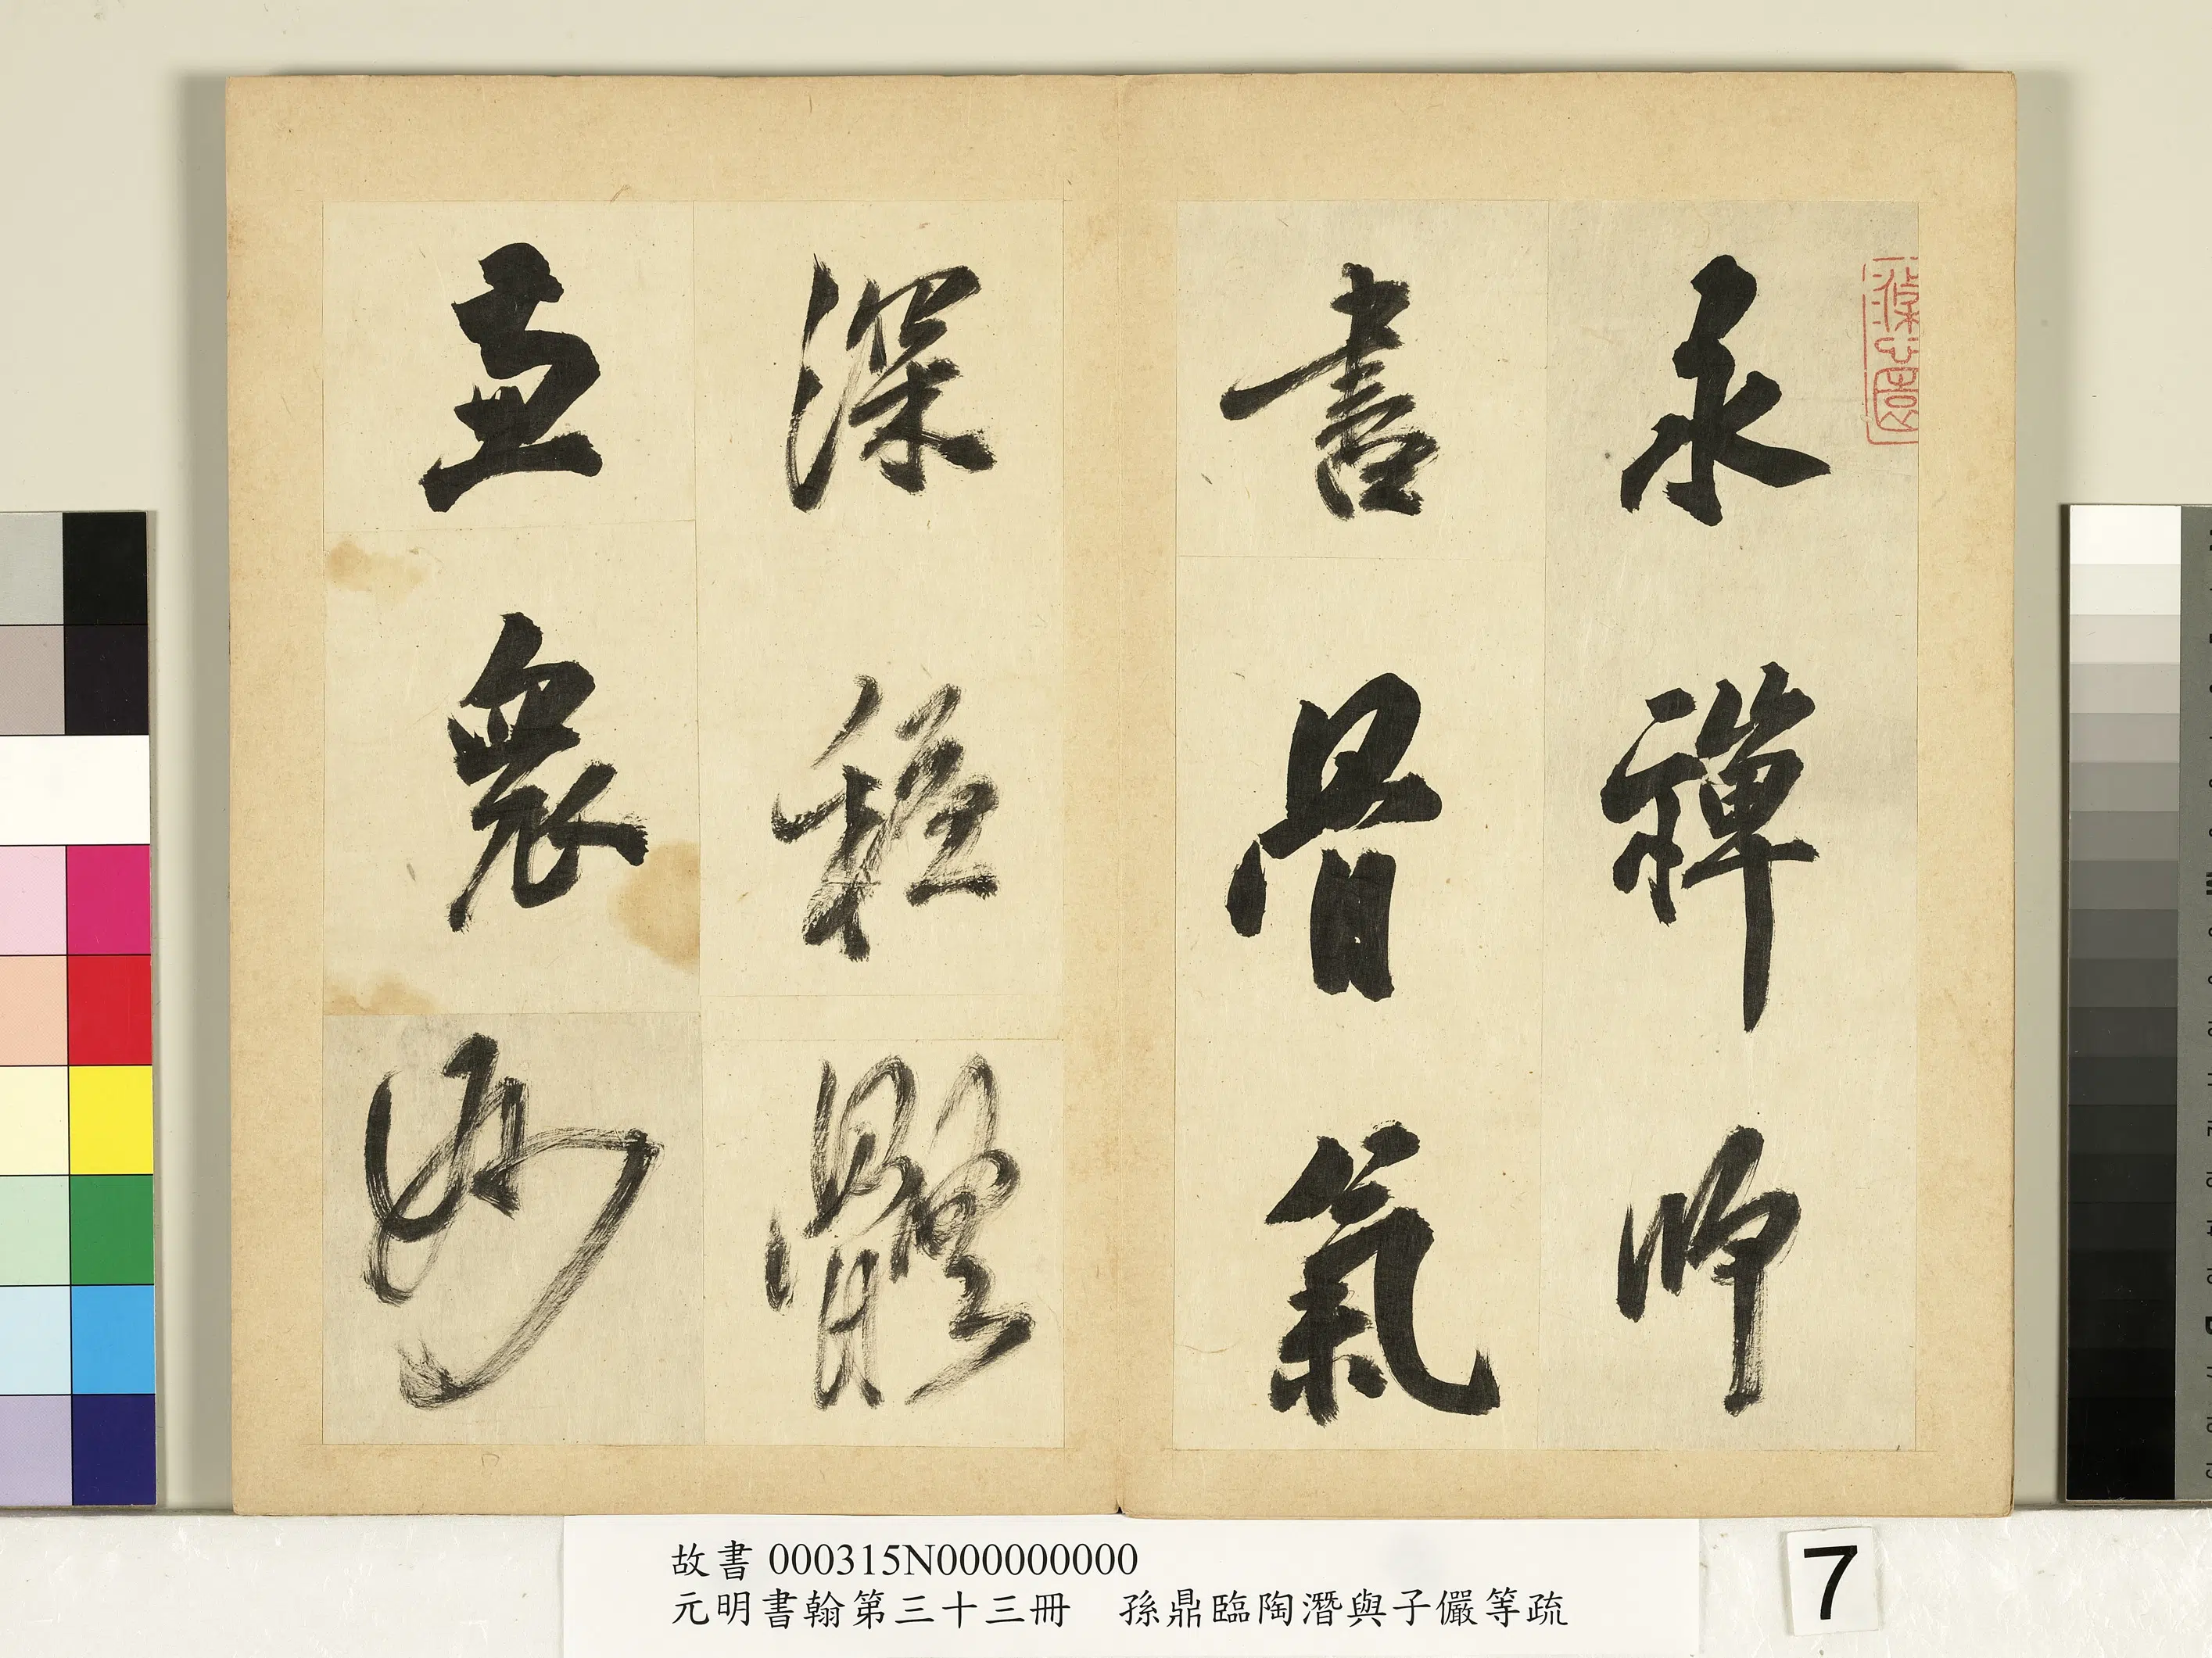 永禪師
書骨氣
深穩體
兼衆妙
故書 000315N000000000
元明書翰第三十三冊 孫鼎臨陶潛與子儼等疏
7